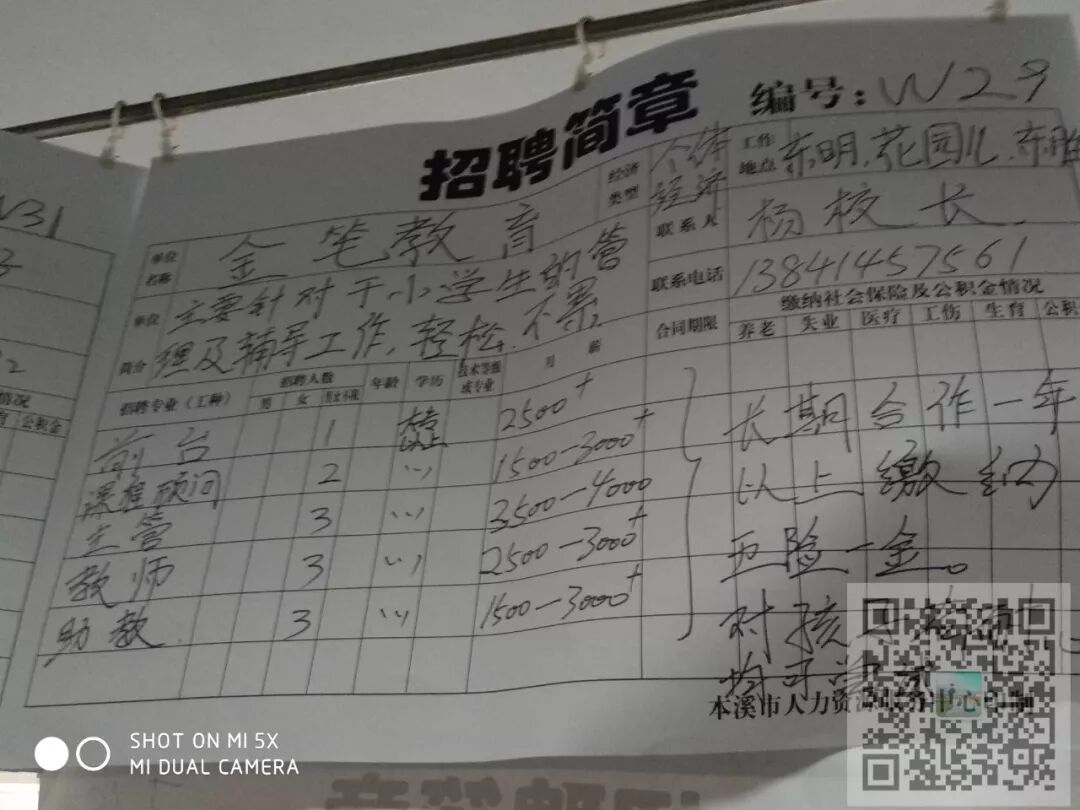 招聘简章 编号: W29
单位名称 金笔教育 经济类型 个体经济 工作地点 东明.花园儿.东胜
联系人 杨校长.
单位简介 主要针对于小学生的管理及辅导工作,轻松.不累. 联系电话 13841457561
合同期限 缴纳社会保险及公积金情况
养老 失业 医疗 工伤 生育 公积
招聘专业(工种) 招聘人数 年龄 学历 技术等级或专业 月薪
男 女
前台 1 大专以上 2500+
课程顾问 2 〃 1500-3000+
主管 3 〃 3500-4000
教师 3 〃 2500-3000+
助教. 3 〃 1500-3000+
长期合作一年
以上缴纳
五险一金。
对孩
均可
本溪市人力资 中心 制
W31
3
2
情况
育 公积金
SHOT ON MI 5X
MI DUAL CAMERA